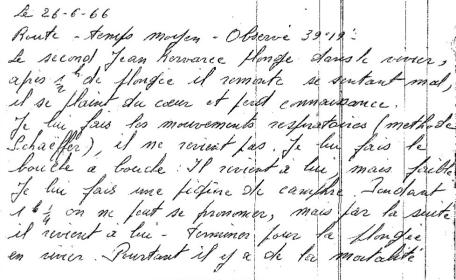 Le 26-6-66
Route - temps moyen - Observé 39°19':
Le second Jean Kervarec plonge dans le vivier,
après ½h de plongée il remonte se sentant mal,
il se plaint du cœur et perd connaissance.
Je lui fais les mouvements respiratoires (méthode
Schaeffer), il ne revient pas. Je lui fais le
bouche à bouche : Il revient à lui, mais faible
Je lui fais une piqûre de camphre. Pendant
1h ¼ on ne peut se prononcer, mais par la suite
il revient à lui - terminer pour la plongée
en vivier. Pourtant il y a de la mortalité